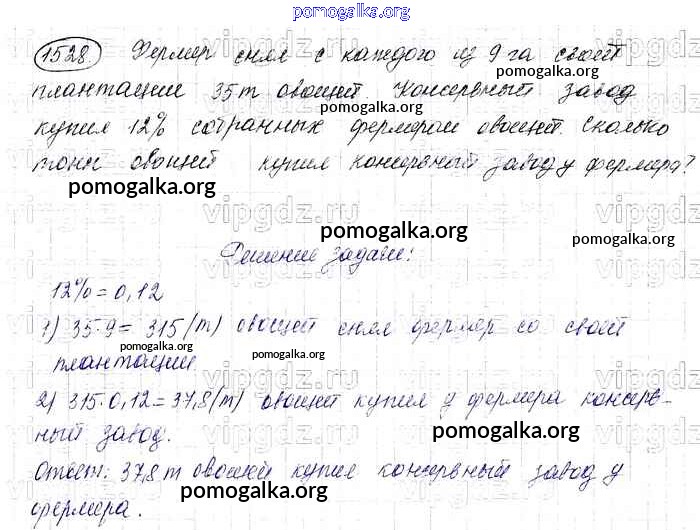 pomogalka.org
1528. Фермер снял с каждого из 9 га своей
pomogalka.org
плантации 35 т овощей. Консервный завод
pomogalka.org
купил 12% собранных фермером овощей. Сколько
тонн овощей купил консервный завод у фермера?
pomogalka.org
pomogalka.org
pomogalka.org
Решение задачи:
12% = 0,12
1) 35·9 = 315 (т) овощей снял фермер со своей
pomogalka.org
pomogalka.org
плантации
2) 315·0,12 = 37,8 (т) овощей купил у фермера консерв-
ный завод.
pomogalka.org
Ответ: 37,8 т овощей купил консервный завод у
pomogalka.org
pomogalka.org
фермера.